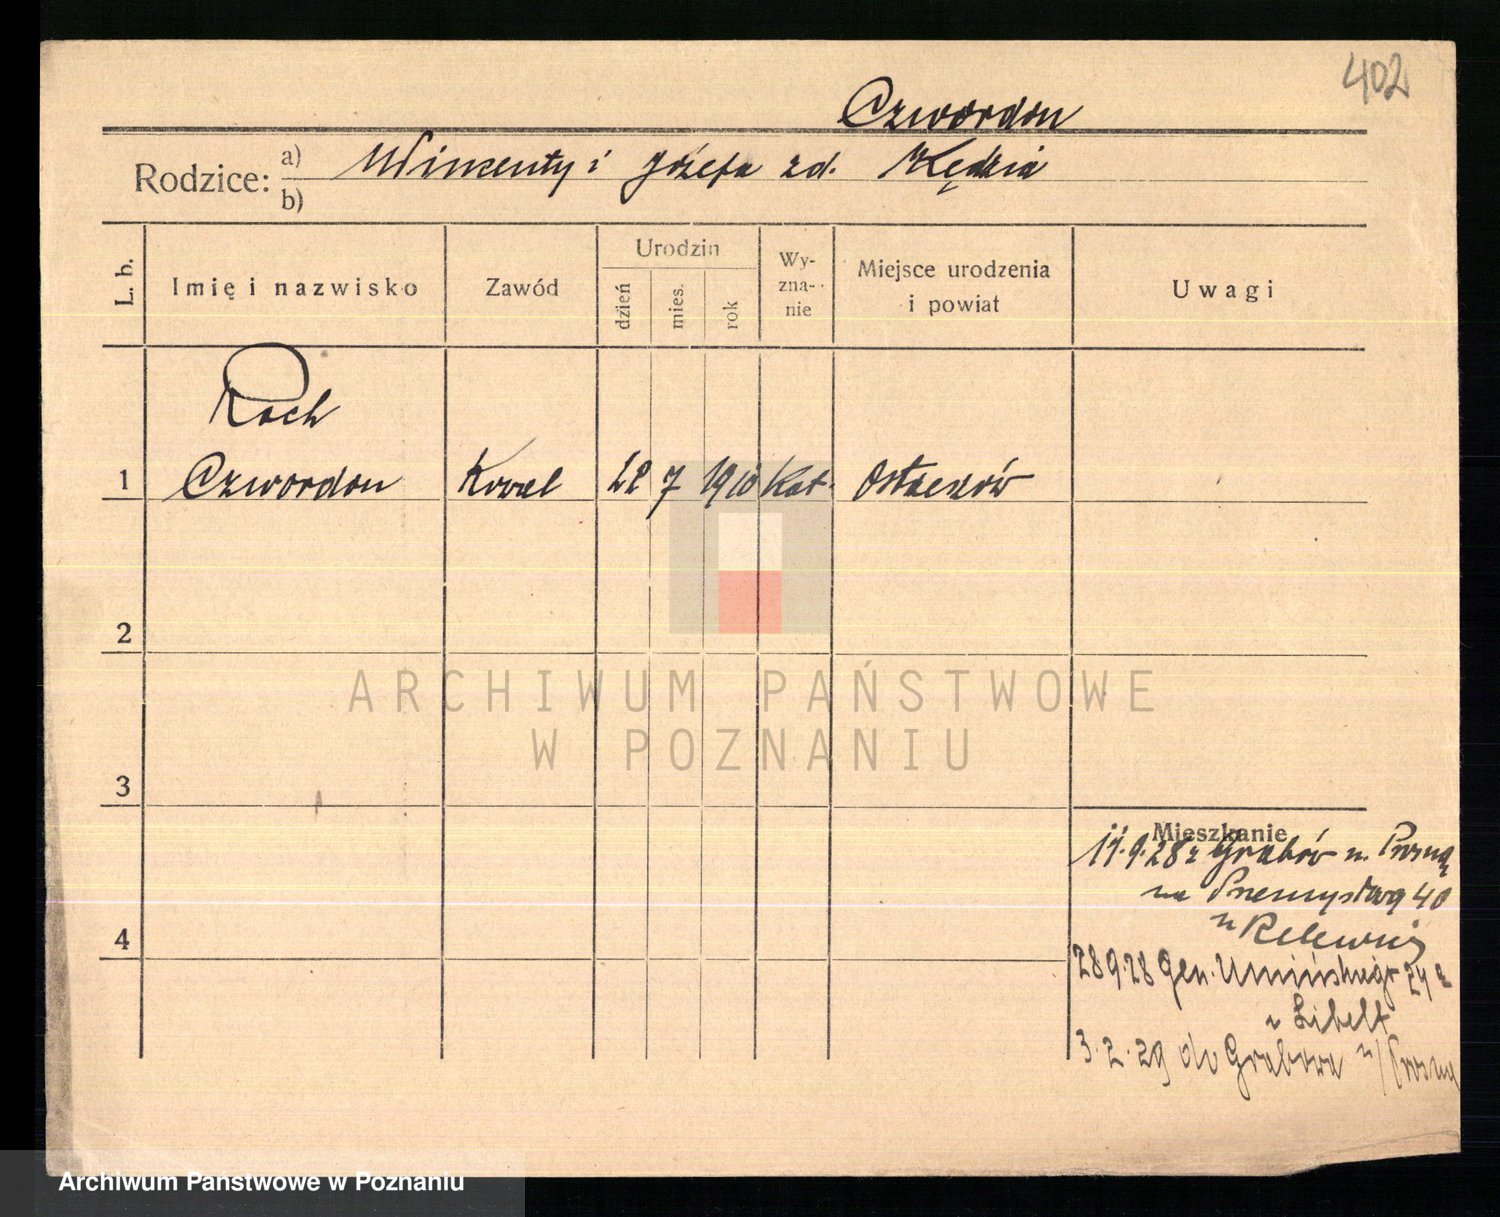 402
Czwordon
Rodzice: a) Wincenty i Józefa zd. Kędzia
b)
L. b.
Imię i nazwisko
Zawód
Urodzin
dzień
mies.
rok
Wy-
zna-
nie
Miejsce urodzenia
i powiat
Uwagi
Roch
1 Czwordon Kowal 22 7 1910 Kat. Ostrzeszów
2
3
4
Mieszkanie
11.9.28 z Grabów n. Prosną
na Przemysłową 40
28.9.28 Gen. Umińskiego 24a
u Libelt
3.2.29 do Grabowa n/Prosną
ARCHIWUM PAŃSTWOWE
W POZNANIU
Archiwum Państwowe w Poznaniu